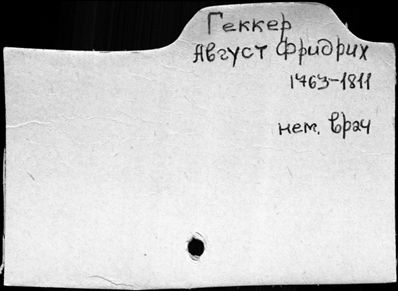 Геккер
Август Фридрих
1763-1811
нем. врач